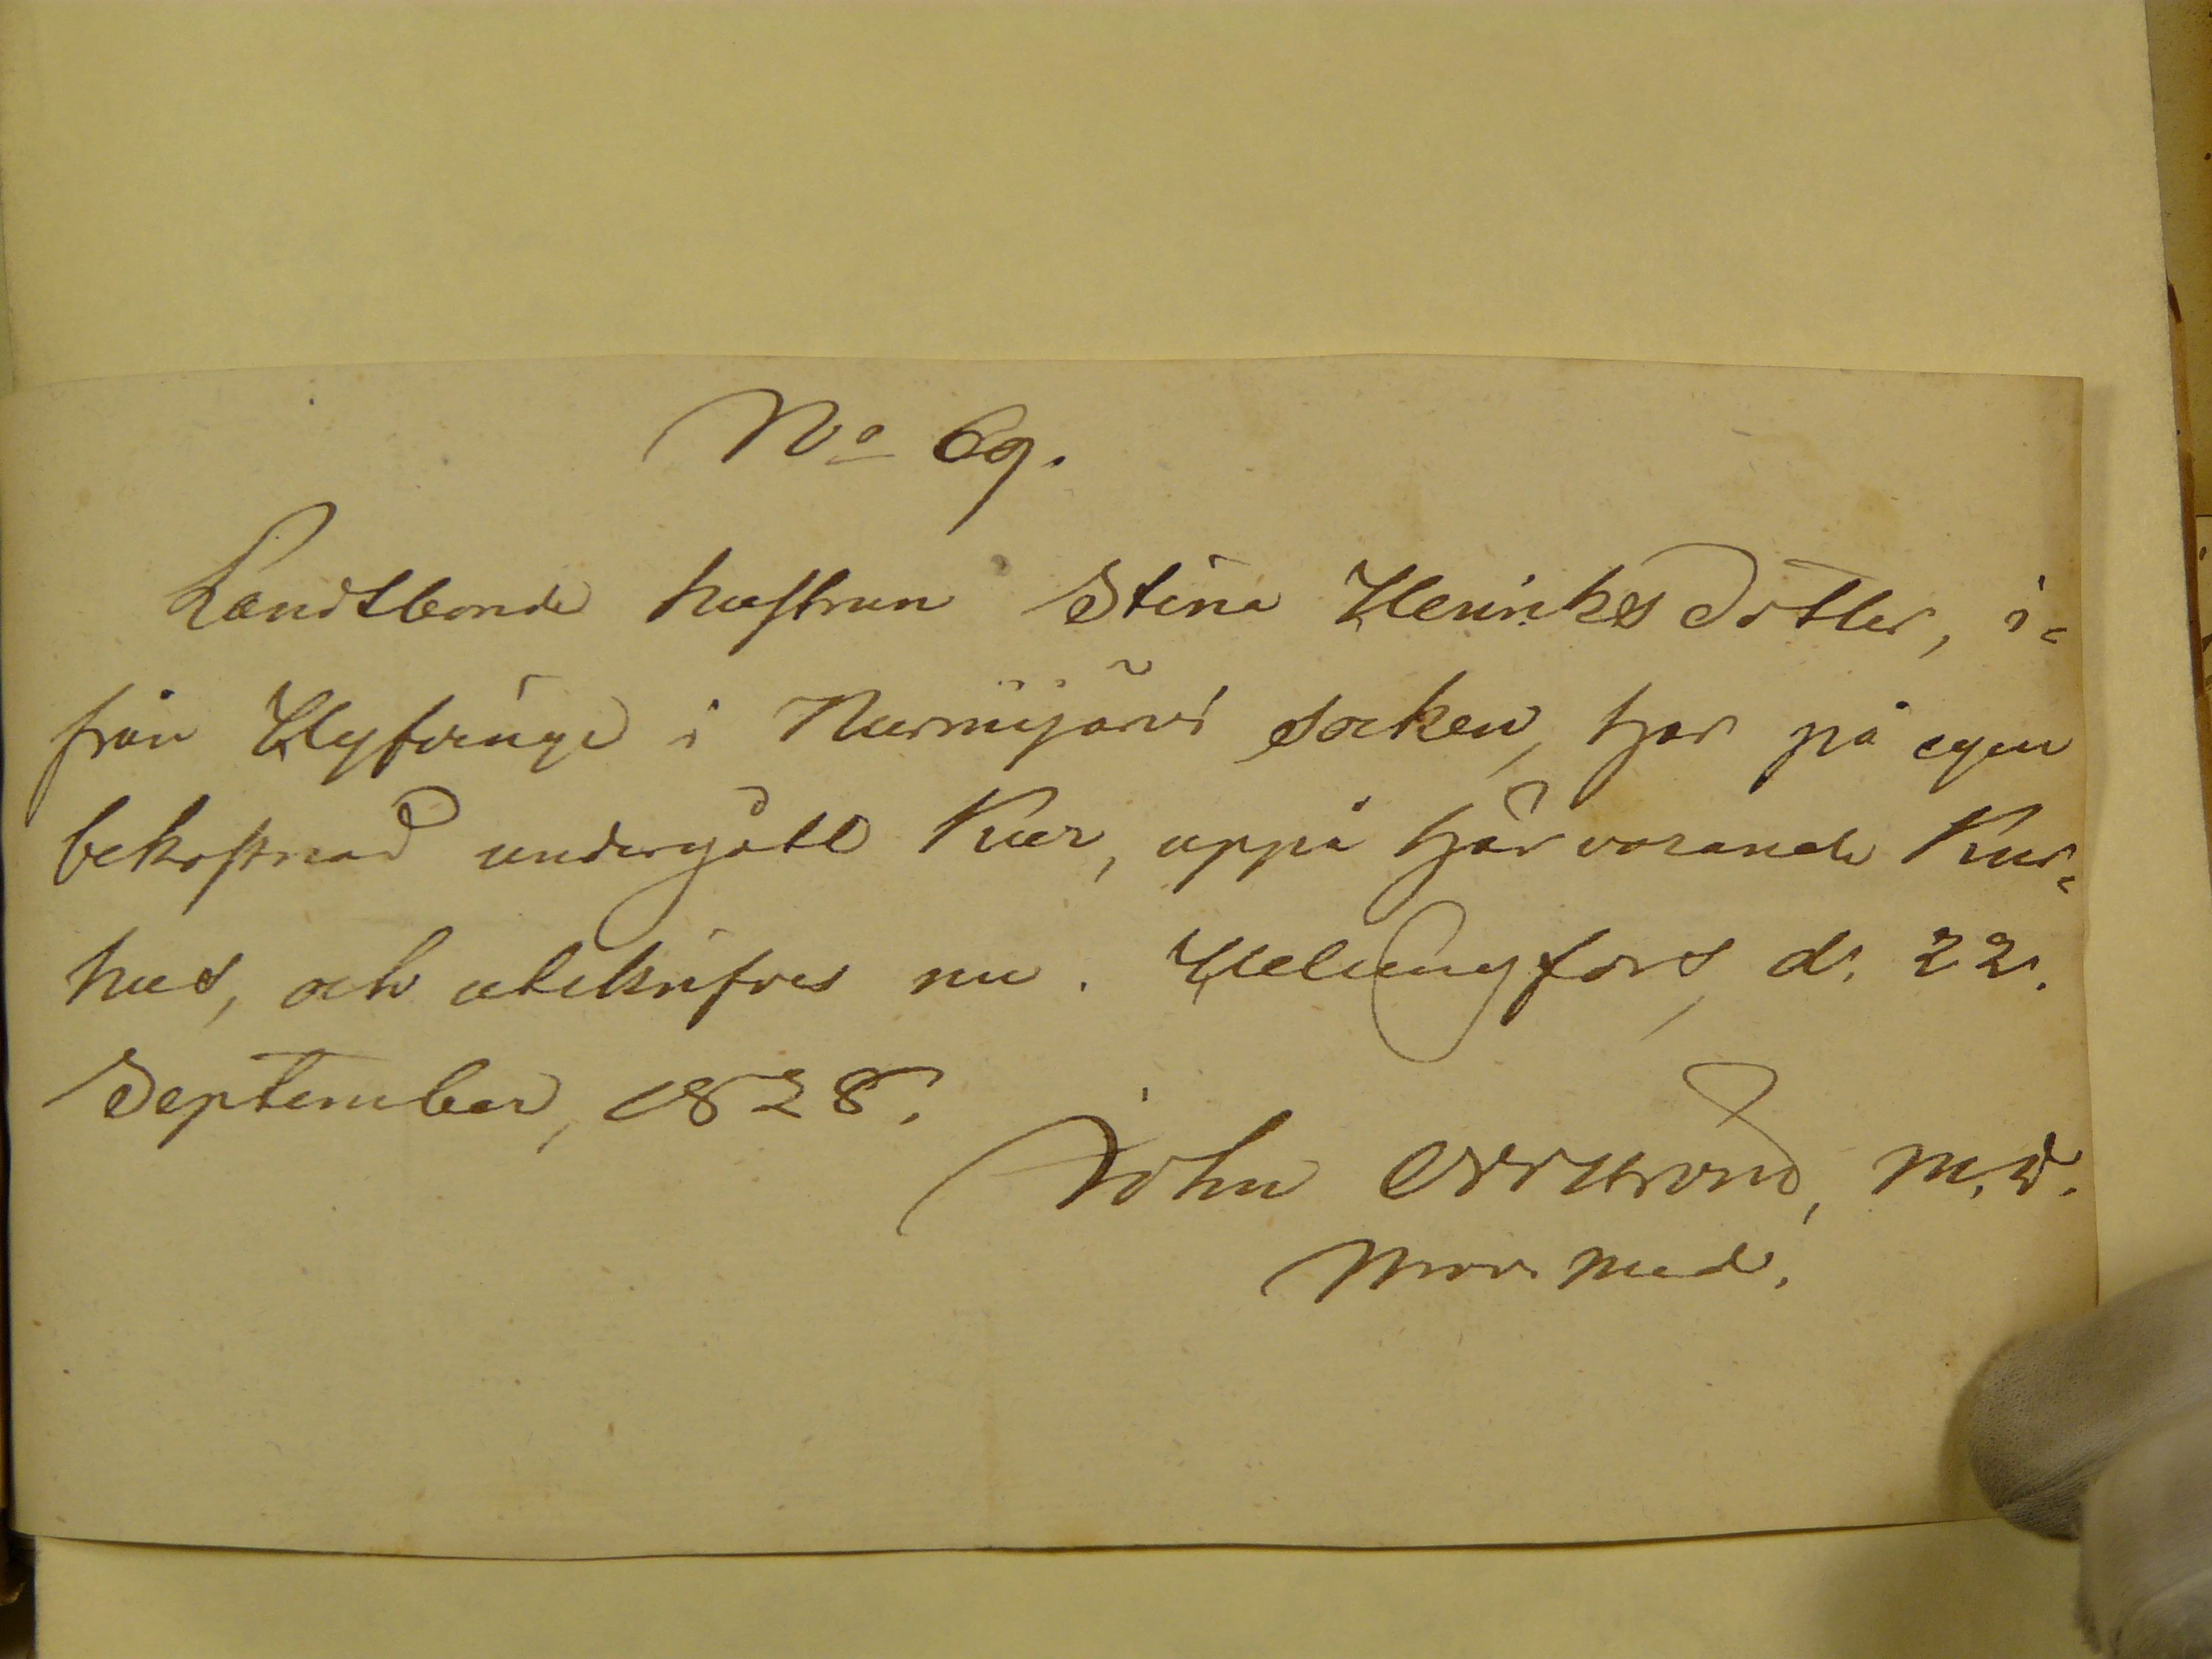 No 69.
Landtbonde hustrun Stina Henriks Dotter, i-
från Hyfvinge i Nurmijärvi socken, har på egen
bekostnad undergått Kur, uppå härvarande Kur-
hus, och utskrifves nu. Helsingfors, d. 22.
September, 1828.
John M.D.
Med.